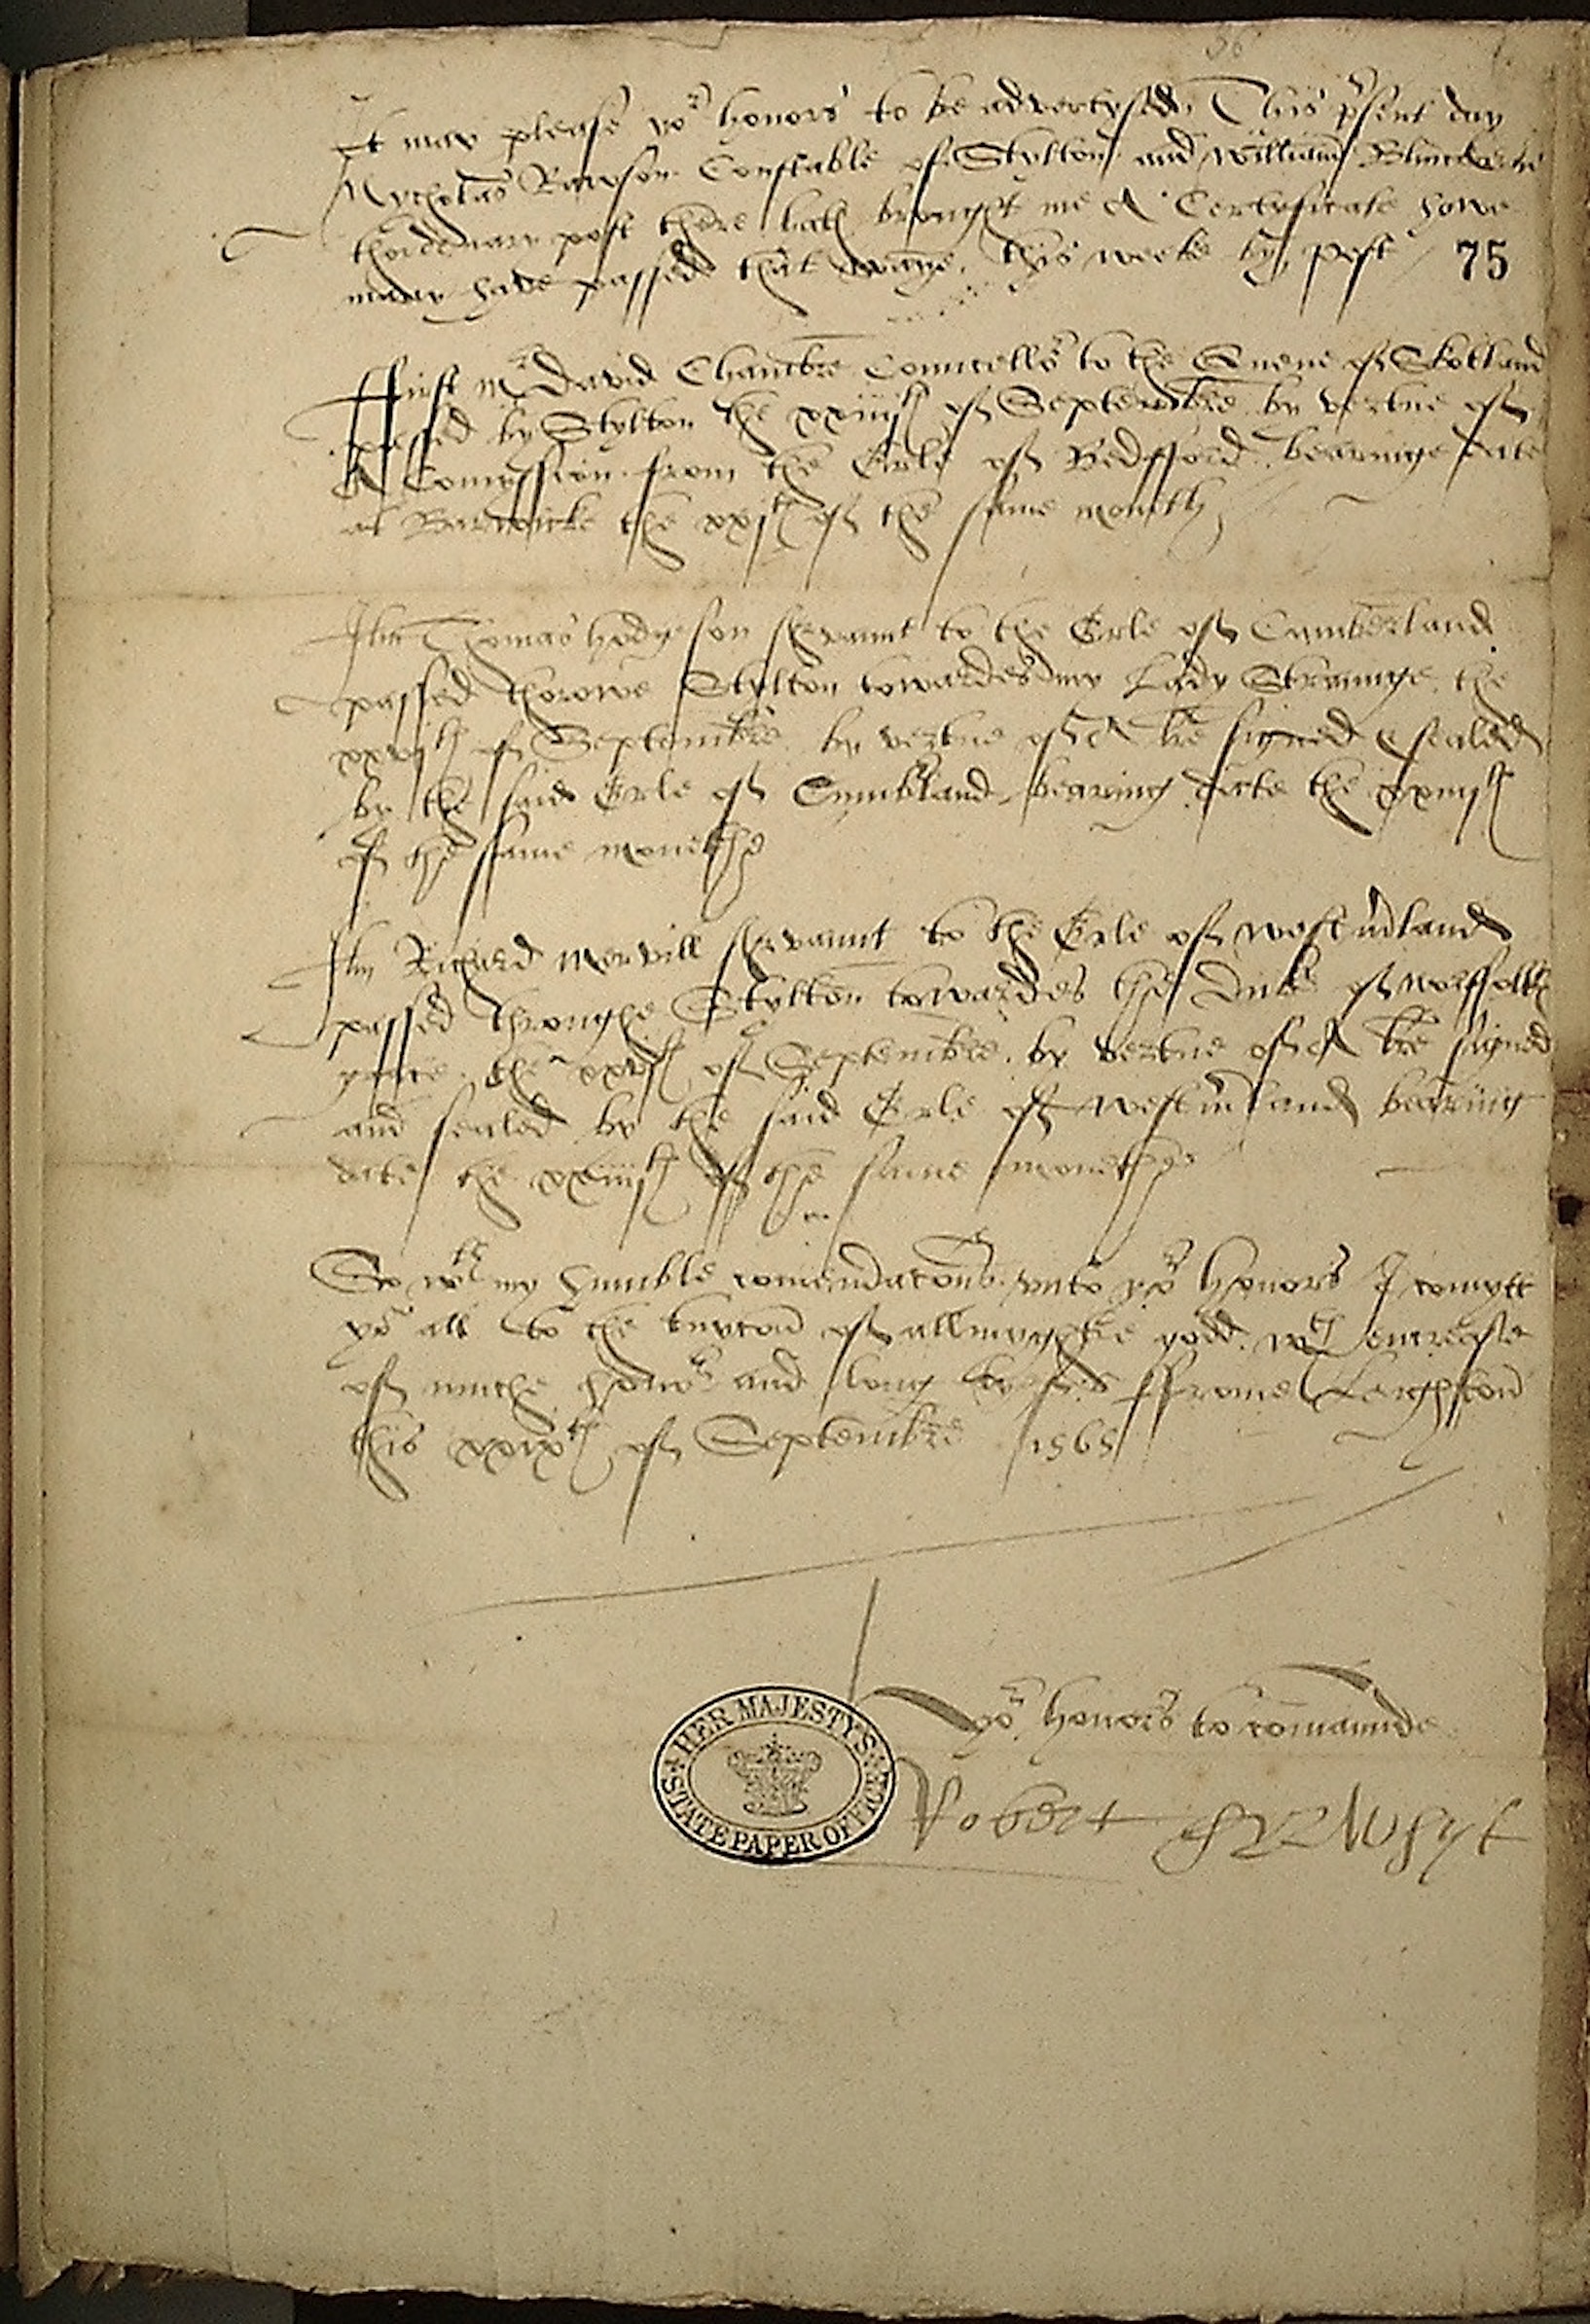 It may please yor honors to be advertysed, This psent day
Nycholas Rawson Constable of Stylton and William
thordenary post there hath brought me A Certyficate howe
many have passed that waye this weeke by post
75
ffirst mr David Chambre Councellor to the Quene of Skotland
passed by Stylton the xxiiijth of Septembre by vertue of
A Comyssion from the Erle of Bedfford bearinge date
at Barwicke the xxjth of the same moneth
Itm Thomas hodgeson servaunt to the Erle of Cumberland
passed thorowe Stylton towardes my Lady Straunge the
xxvjth of Septembre by vertue of A lre signed & sealed
by the said Erle of Cumbland bearing date the
of the same monethe
Itm Richard servaunt to the Erle of westmland
passed throughe Stylton towardes the Duke of Norffolkes
grace the of Septembre by vertue of A lre signed
and sealed by the said Erle of westmland bearing
date the xxiiijth of the same monethe
So wth my humble comendacons unto yor honors I comytt
yo all to the tuycon of allmyghtie godd wth encrease
of muche honor and long lyfe ffrome Leighton
this xxixth of Septembre 1565
yor honors to comaunde
Robert
HER MAJESTY'S
STATE PAPER OFFICE